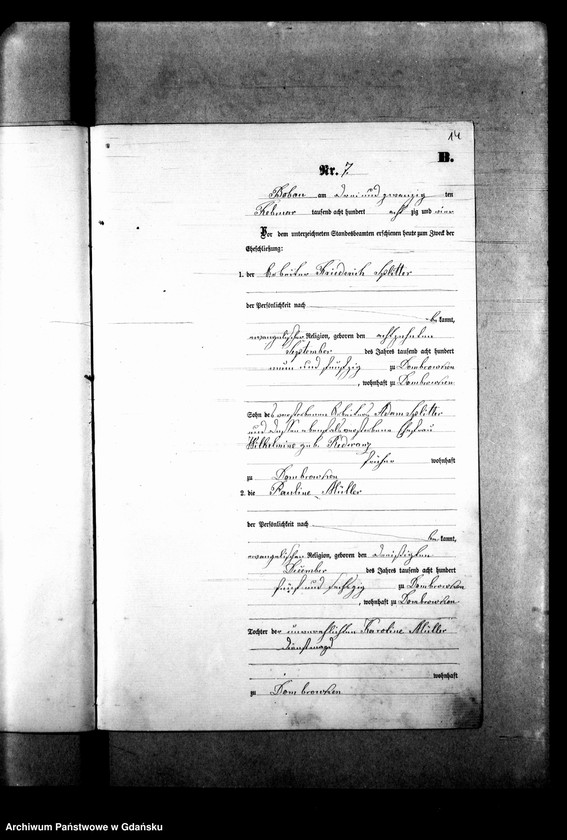 14
B.
Nr. 7
Boban am drei und zwanzig ten
Februar tausend acht hundert acht zig und vier
Vor dem unterzeichneten Standesbeamten erschienen heute zum Zweck der
Eheschließung:
1. der Arbeiter Friederich Splitter
der Persönlichkeit nach
be kannt,
evangelischer Religion, geboren den achtzehnten
September des Jahres tausend acht hundert
neun und fünfzig zu Dombrowken
, wohnhaft zu Dombrowken
Sohn des verstorbenen Arbeiters Adam Splitter
und dessen ebenfalls verstorbene Ehefrau
Wilhelmine geb.
früher wohnhaft
zu Dombrowken
2. die Pauline Müller
der Persönlichkeit nach
be kannt,
evangelischen Religion, geboren den dreißigsten
Dezember des Jahres tausend acht hundert
fünf und sechszig zu Dombrowken
, wohnhaft zu Dombrowken
Tochter der unverehelichten Karoline Müller
Dienstmagd
wohnhaft
zu Dombrowken
Archiwum Państwowe w Gdańsku